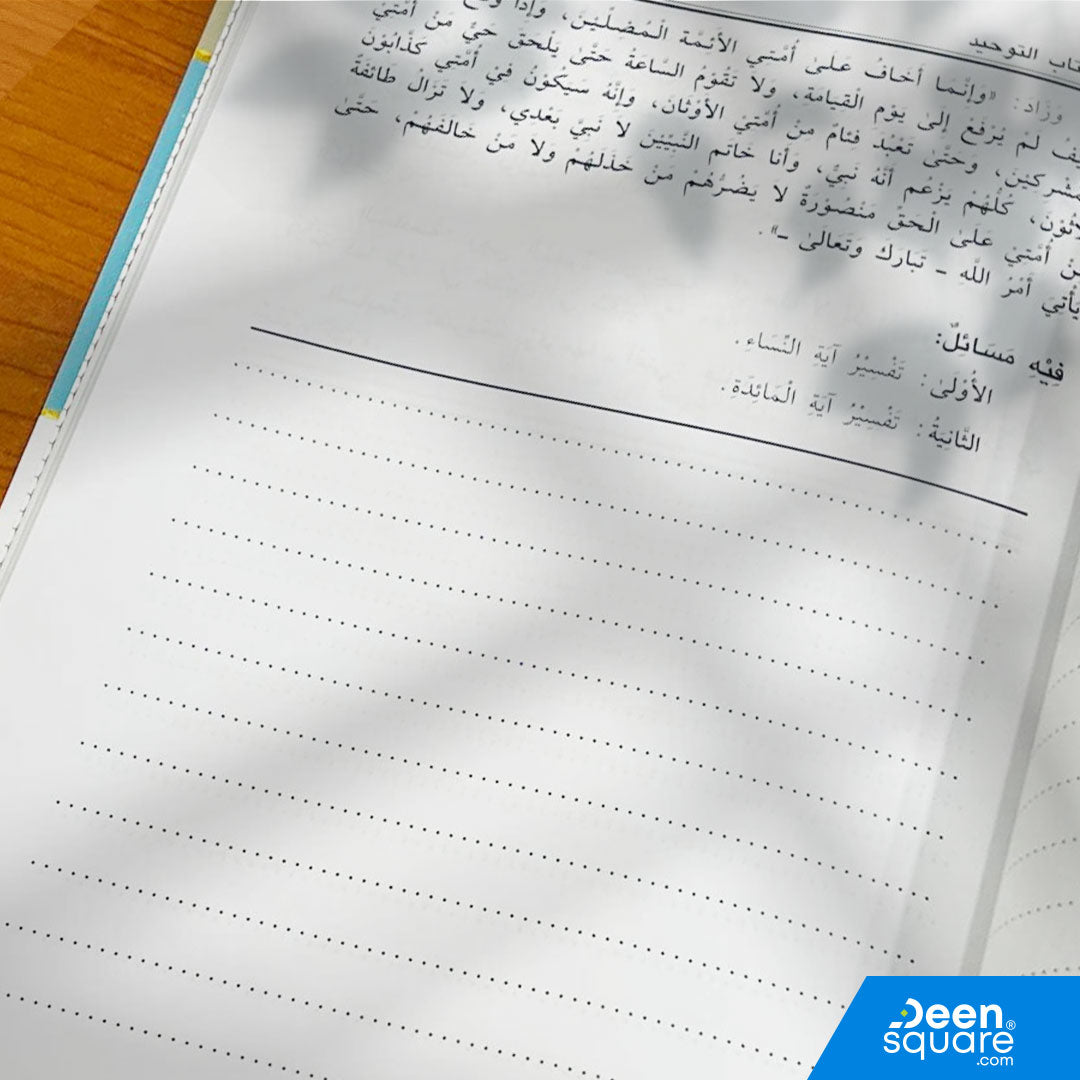 التوحيد
وَزَادَ: «وَإِنَّمَا أَخَافُ عَلَىٰ أُمَّتِي الأَئِمَّةَ الْمُضِلِّيْنَ، وَإِذَا
لَمْ يُرْفَعْ إِلَىٰ يَوْمِ الْقِيَامَةِ، وَلَا تَقُوْمُ السَّاعَةُ حَتَّىٰ يَلْحَقَ حَيٌّ مِنْ أُمَّتِيْ
وَحَتَّىٰ تَعْبُدَ فِئَامٌ مِنْ أُمَّتِيْ الأَوْثَانَ، وَإِنَّهُ سَيَكُوْنُ فِيْ أُمَّتِي كَذَّابُوْنَ
كُلُّهُمْ يَزْعُمُ أَنَّهُ نَبِيٌّ، وَأَنَا خَاتَمُ النَّبِيِّيْنَ لَا نَبِيَّ بَعْدِي، وَلَا تَزَالُ طَائِفَةٌ
أُمَّتِيْ عَلَىٰ الْحَقِّ مَنْصُوْرَةٌ لَا يَضُرُّهُمْ مَنْ خَذَلَهُمْ وَلَا مَنْ خَالَفَهُمْ، حَتَّىٰ
يَأْتِيَ أَمْرُ اللَّهِ - تَبَارَكَ وَتَعَالَىٰ -».
فِيْهِ مَسَائِلُ:
الأُوْلَىٰ: تَفْسِيْرُ آيَةِ النِّسَاءِ.
الثَّانِيَةُ: تَفْسِيْرُ آيَةِ الْمَائِدَةِ.
Deen®
square
.com